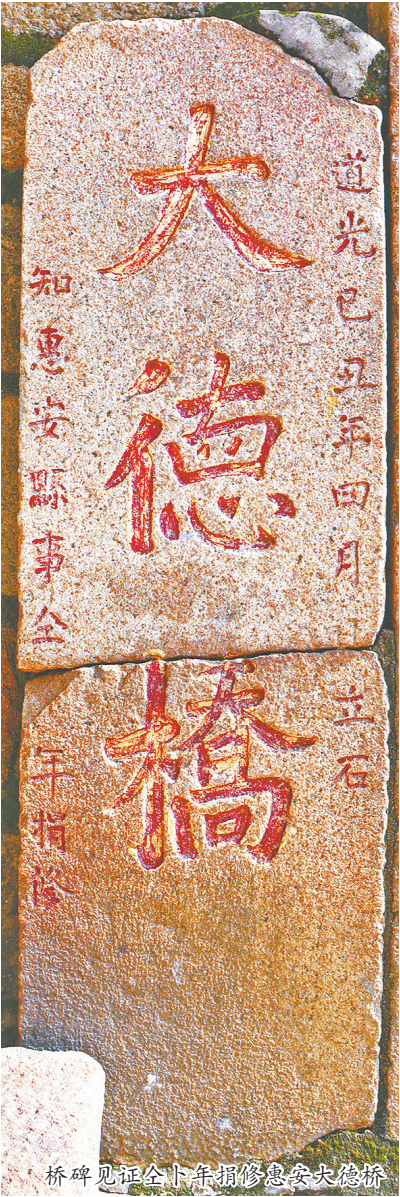 道光己丑年四月
立石
大德橋
知惠安縣事仝
年捐修
桥碑见证仝卜年捐修惠安大德桥